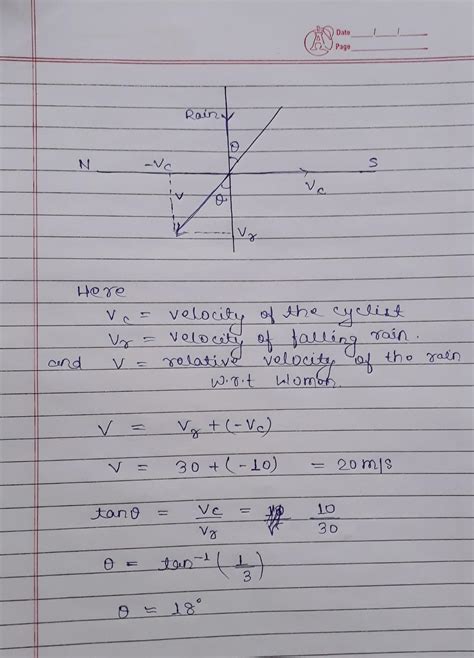 Date / /
Page
Rain
θ
N -Vc S
Vc
V θ
Vr
Here
Vc = velocity of the cyclist
Vr = velocity of falling rain.
and V = relative velocity of the rain
w.r.t women.
V = Vr + (-Vc)
V = 30 + (-10) = 20 m/s
tanθ = Vc/Vr = 10/30
θ = tan⁻¹(1/3)
θ = 18°